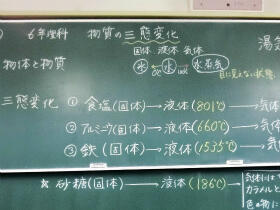 6年理科 物質の三態変化
固体 液体 気体
氷 0℃ 水 100℃ 水蒸気
目に見えない状態
物体と物質
三態変化 ① 食塩(固体)→液体(801℃)→気体
② アルミニウム(固体)→液体(660℃)→気
③ 鉄(固体)→液体(1535℃)→気
☆ 砂糖(固体)→液体(186℃)
カラメルと